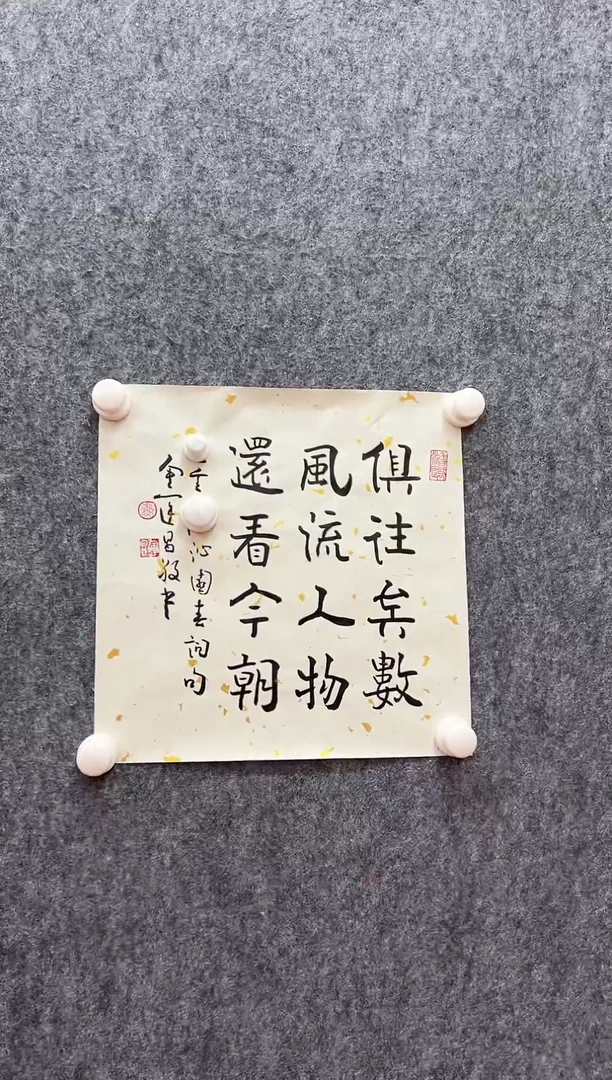 俱往矣數
風流人物
還看今朝
沁園春詞句
昌敬书